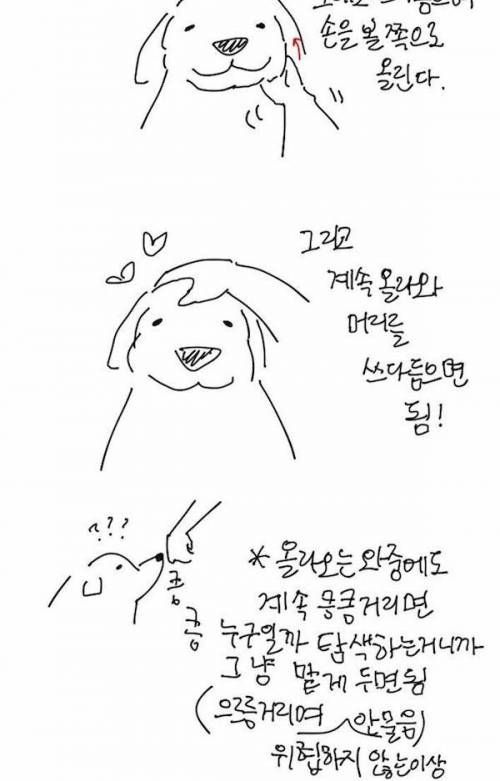 손을 볼쪽으로
올린다.
그리고
계속 올라와
머리를
쓰다듬으면
됨!
???
킁
킁
* 올라오는 와중에도
계속 킁킁거리면
누구일까 탐색하는거니까
그냥 맡게 두면됨
(으릉거리며 안물음)
위협하지 않는이상